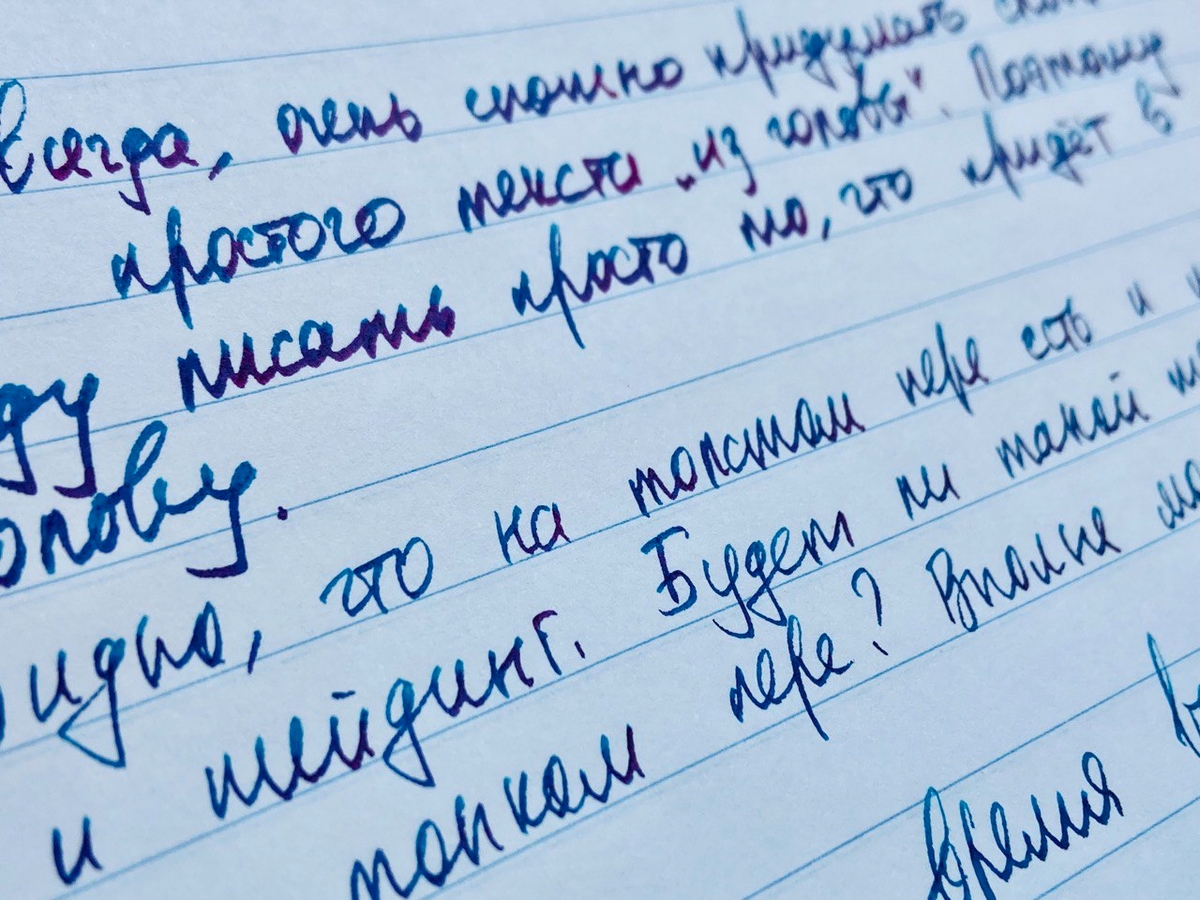 всегда, очень сложно придумать
простого текста „из головы“. Поэтому
ду писать просто то, что придёт в
олову.
идно, что на толстом пере есть и
и шейдинг. Будет ли такой
тонком пере? Вполне
Время